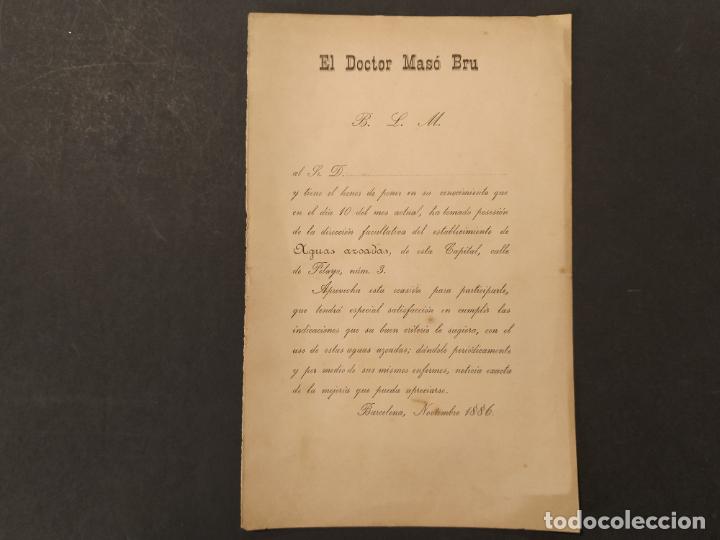 El Doctor Masó Bru
B. L. M.
al Sr. D.
y tiene el honor de poner en su conocimiento que
en el día 10 del mes actual, ha tomado posesión
de la dirección facultativa del establecimiento de
Aguas azoadas, de esta Capital, calle
de Pelayo, núm. 3.
Aprovecha esta ocasión para participarle,
que tendrá especial satisfacción en cumplir las
indicaciones que su buen criterio le sugiera, con el
uso de estas aguas azoadas; dándole periódicamente
y por medio de sus mismos enfermos, noticia exacta
de la mejoría que pueda apreciarse.
Barcelona, Noviembre 1886.
todocoleccion
todocoleccion.net